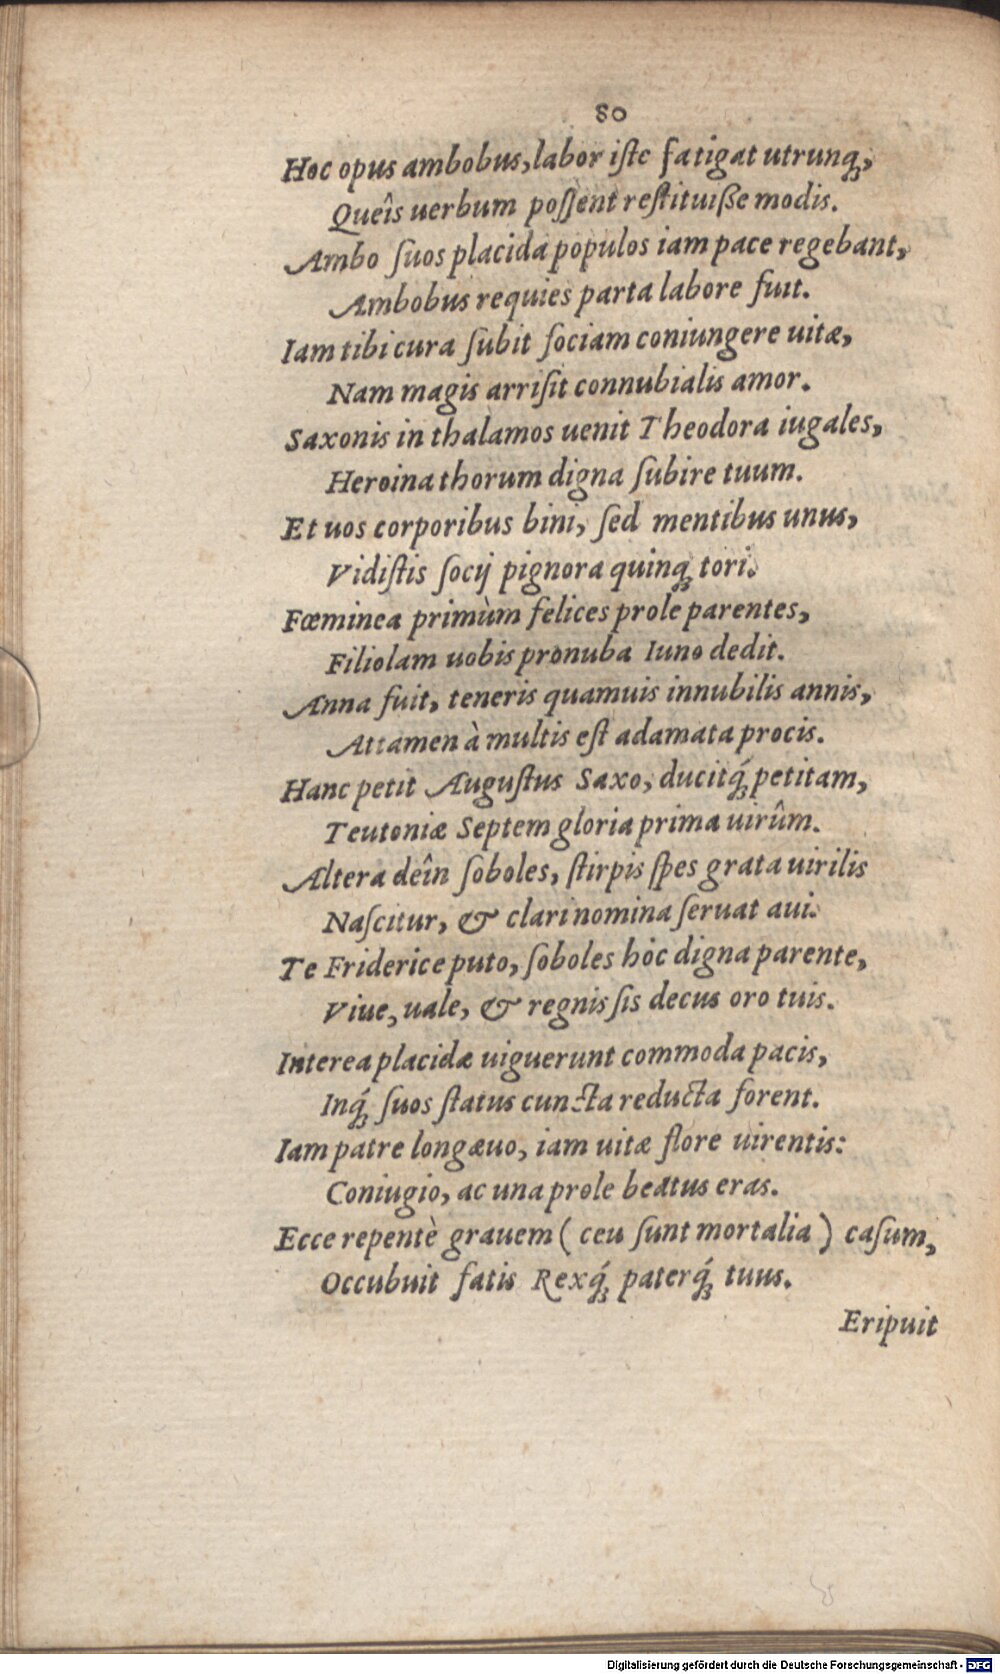 80
Hoc opus ambobus, labor iſte fatigat utrunq́;,
Queîs uerbum poſſent reſtituiſſe modis.
Ambo ſuos placida populos iam pace regebant,
Ambobus requies parta labore fuit.
Iam tibi cura ſubit ſociam coniungere uitæ,
Nam magis arriſit connubialis amor.
Saxonis in thalamos uenit Theodora iugales,
Heroina thorum digna ſubire tuum.
Et uos corporibus bini, ſed mentibus unus,
Vidiſtis ſocij pignora quinq; tori.
Fœminea primùm felices prole parentes,
Filiolam uobis pronuba Iuno dedit.
Anna fuit, teneris quamuis innubilis annis,
Attamen à multis eſt adamata procis.
Hanc petit Auguſtus Saxo, ducitq́; petitam,
Teutoniæ Septem gloria prima uirûm.
Altera deîn ſoboles, ſtirpis ſpes grata uirilis
Naſcitur, & clari nomina ſeruat aui.
Te Friderice puto, ſoboles hôc digna parente,
Viue, uale, & regnis ſis decus oro tuis.
Interea placidæ uiguerunt commoda pacis,
Inq́; ſuos ſtatus cuncta reducta forent.
Iam patre longæuo, iam uitæ flore uirentis:
Coniugio, ac una prole beatus eras.
Ecce repentè grauem (ceu ſunt mortalia) caſum,
Occubuit fatis Rexq́; paterq́; tuus.
Eripuit
Digitalisierung gefördert durch die Deutsche Forschungsgemeinschaft - DFG